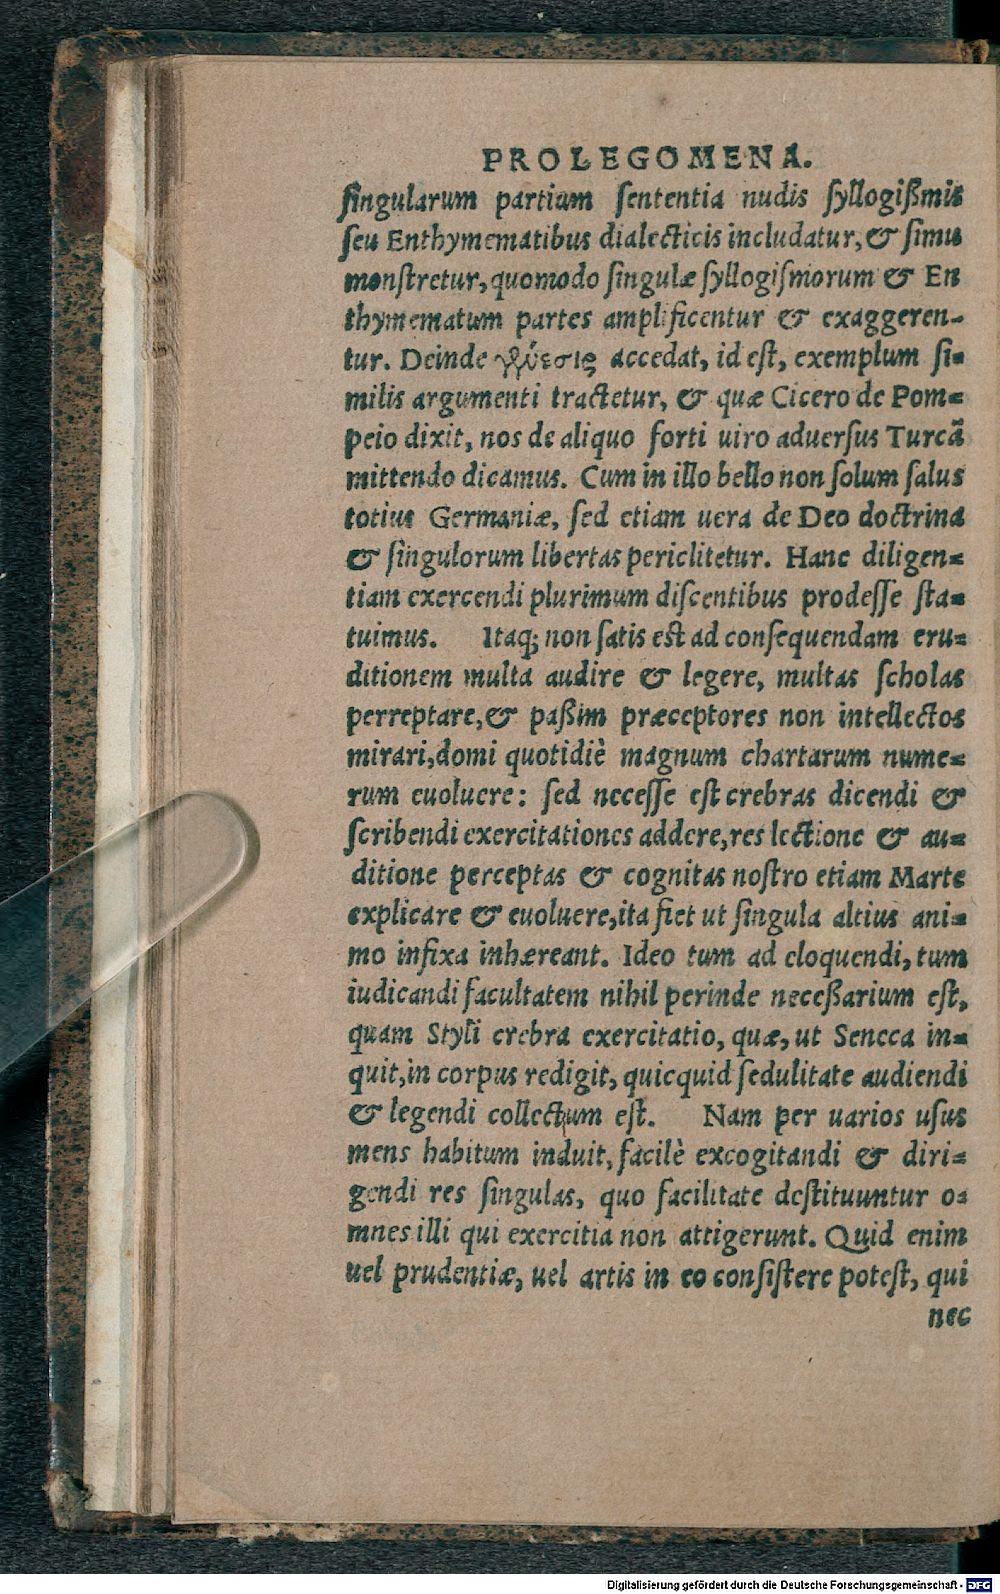 PROLEGOMENA.
ſingularum partium ſententia nudis ſyllogiſmis
ſeu Enthymematibus dialecticis includatur, & ſimu
monſtretur, quomodo ſingulæ ſyllogiſmorum & En
thymematum partes amplificentur & exaggeren-
tur. Deinde accedat, id eſt, exemplum ſi-
milis argumenti tractetur, & quæ Cicero de Pom-
peio dixit, nos de aliquo forti uiro aduerſus Turcã
mittendo dicamus. Cum in illo bello non ſolum ſalus
totius Germaniæ, ſed etiam uera de Deo doctrina
& ſingulorum libertas periclitetur. Hanc diligen-
tiam exercendi plurimum diſcentibus prodeſſe ſta-
tuimus. Itaq; non ſatis eſt ad conſequendam eru-
ditionem multa audire & legere, multas ſcholas
perreptare, & paßim præceptores non intellectos
mirari, domi quotidiè magnum chartarum nume-
rum euoluere: ſed neceſſe eſt crebras dicendi &
ſcribendi exercitationes addere, res lectione & au-
ditione perceptas & cognitas noſtro etiam Marte
explicare & euoluere, ita fiet ut ſingula altius ani-
mo infixa inhæreant. Ideo tum ad eloquendi, tum
iudicandi facultatem nihil perinde neceßarium eſt,
quam Styli crebra exercitatio, quæ, ut Seneca in-
quit, in corpus redigit, quicquid ſedulitate audiendi
& legendi collectum eſt. Nam per uarios uſus
mens habitum induit, facilè excogitandi & diri-
gendi res ſingulas, quo facilitate deſtituuntur o-
mnes illi qui exercitia non attigerunt. Quid enim
uel prudentiæ, uel artis in eo conſiſtere poteſt, qui
nec
Digitalisierung gefördert durch die Deutsche Forschungsgemeinschaft - DFG